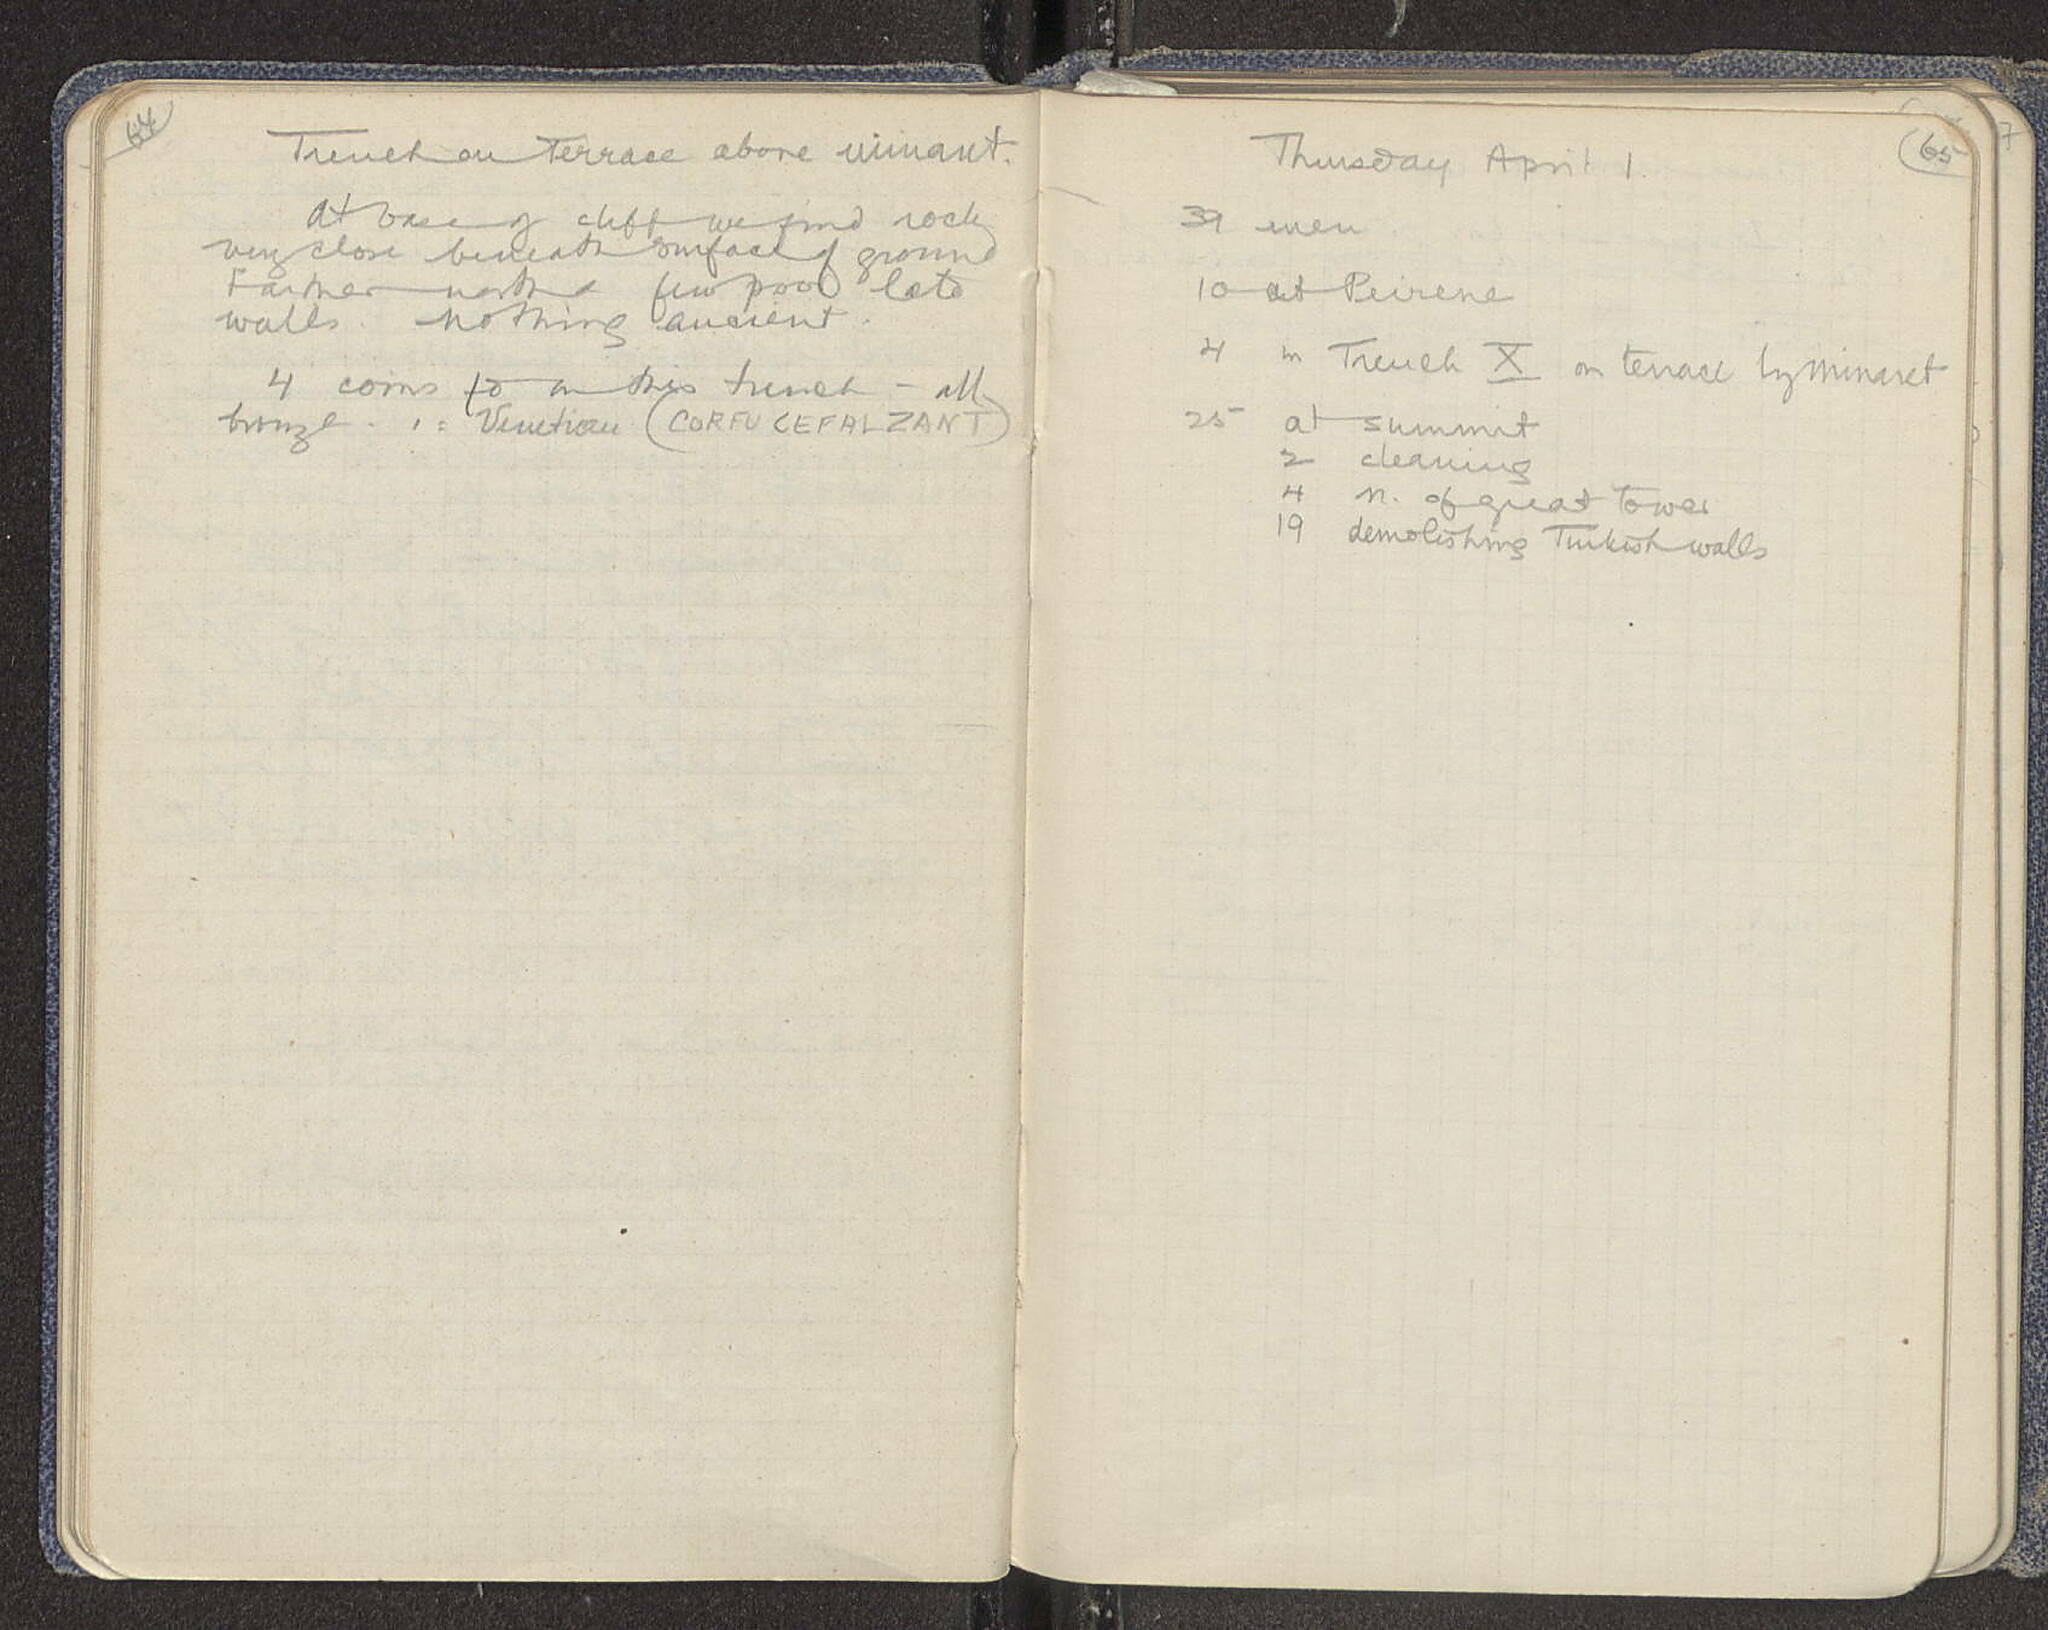 64
Trench on Terrace above minaret.
At base of cliff we find rock
very close beneath surface of ground
Farther north a few poor late
walls. Nothing ancient.
4 coins fd in this trench - all
bronze. 1 = Venetian (CORFU CEFAL ZANT)
65
Thursday April 1.
39 men
10 at Peirene
4 in Trench X on terrace by minaret
25 at summit
2 cleaning
4 n. of great tower
19 demolishing Turkish walls
7